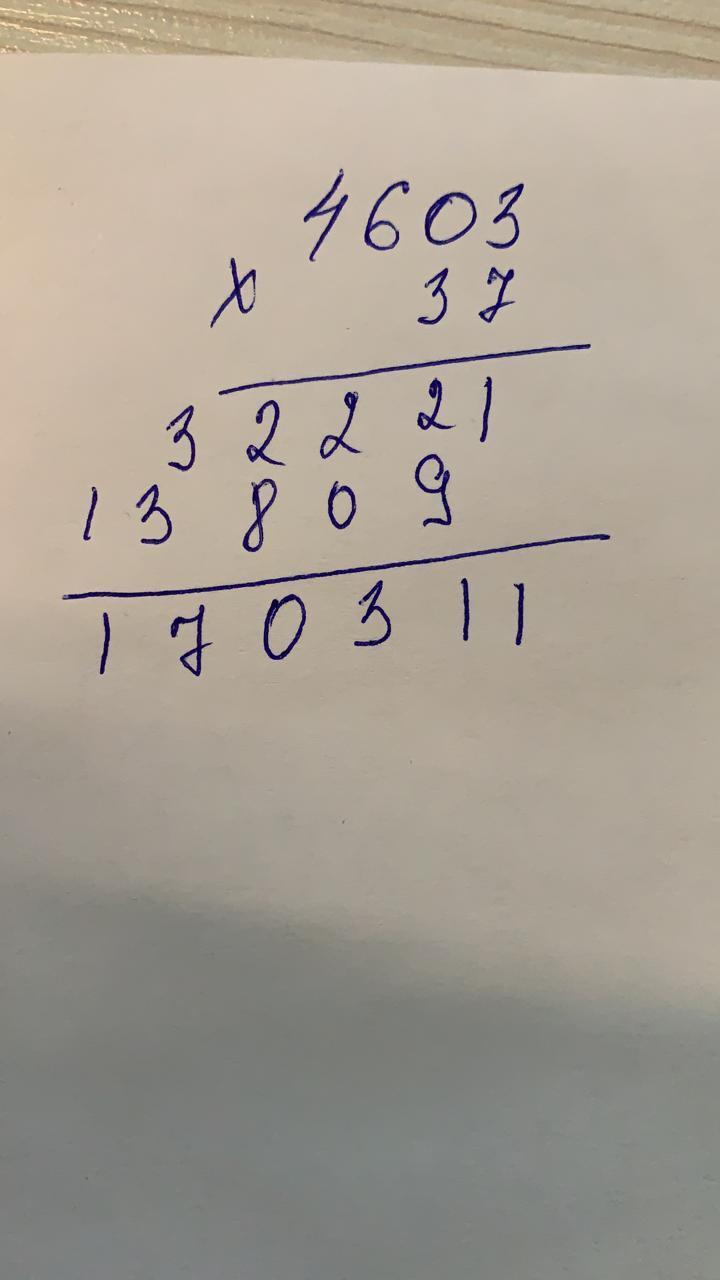 4603
x 37
32221
13809
170311